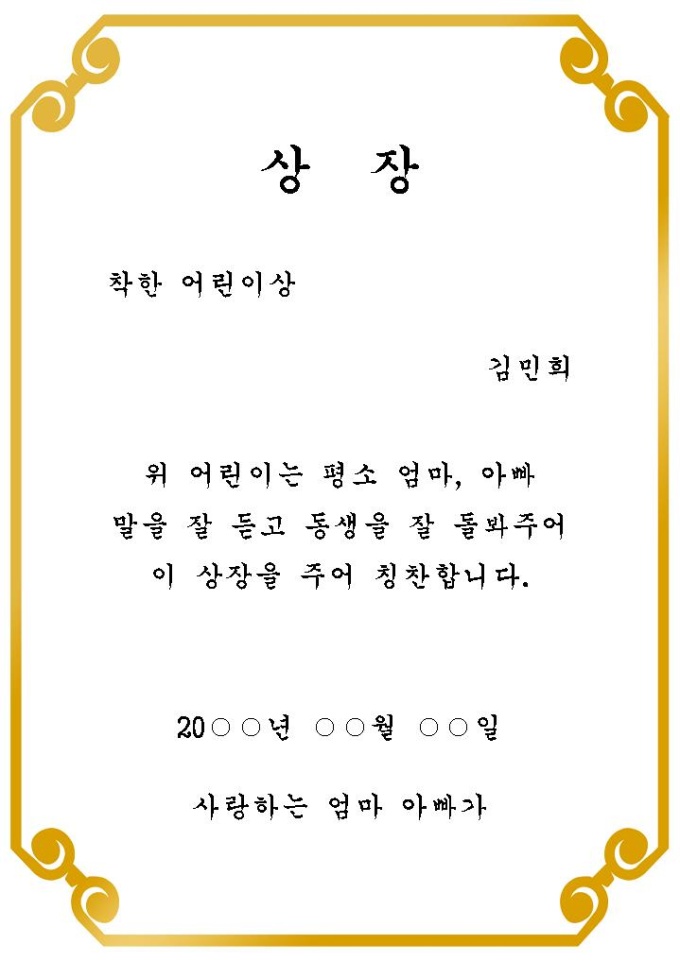 상 장
착한 어린이상
김민희
위 어린이는 평소 엄마, 아빠
말을 잘 듣고 동생을 잘 돌봐주어
이 상장을 주어 칭찬합니다.
20○○년 ○○월 ○○일
사랑하는 엄마 아빠가